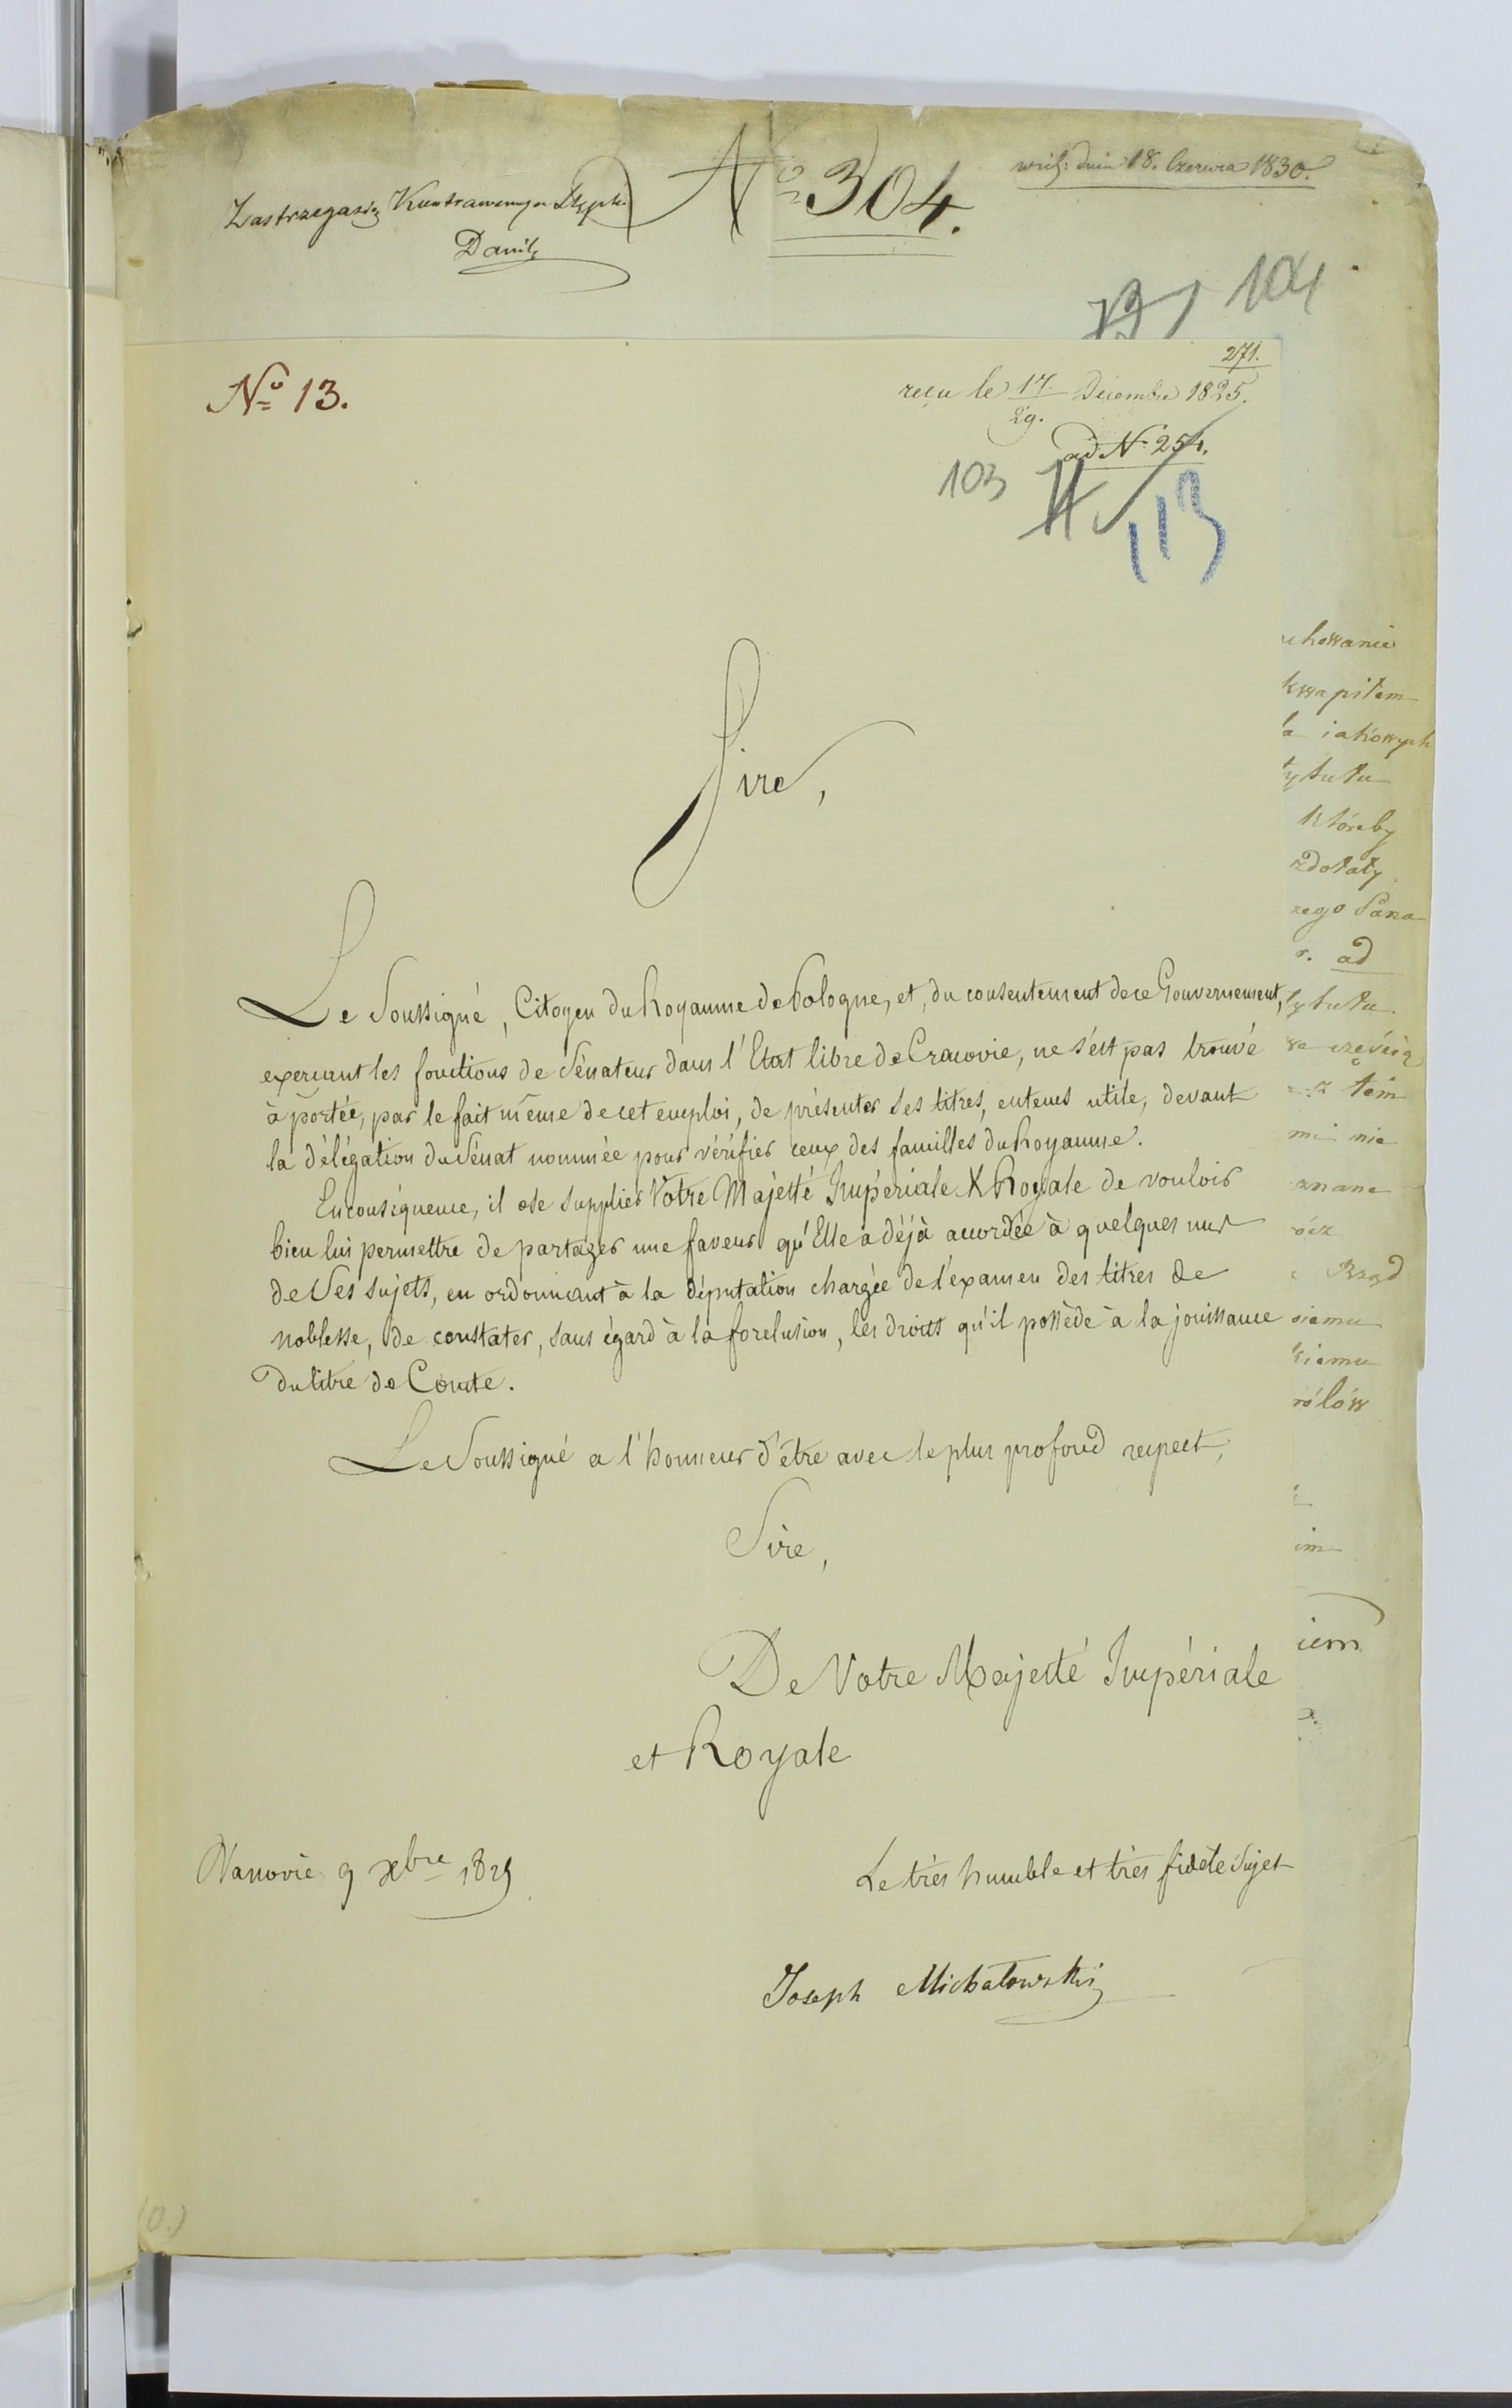 No 304.
18. Czerwca 1830.
Danil
104
No 13.
271.
reçu le 17/29. Décembre 1825.
ad N. 254.
103
113
Sire,
Le Soussigné, Citoyen du Royaume de Pologne, et, du consentement de ce Gouvernement,
exerçant les fonctions de Sénateur dans l'Etat libre de Cracovie, ne s'est pas trouvé
à portée, par le fait même de cet emploi, de présenter ses titres, en tems utile, devant
la délégation du Sénat nommée pour vérifier ceux des familles du Royaume.
En conséquence, il ose supplier Votre Majesté Impériale & Royale de vouloir
bien lui permettre de partager une faveur qu'Elle a déjà accordée à quelques uns
de Ses sujets, en ordonnant à la députation chargée de l'examen des titres de
noblesse, de constater, sans égard à la forclusion, les droits qu'il possède à la jouissance
du titre de Comte.
Le Soussigné a l'honneur d'être avec le plus profond respect,
Sire,
De Votre Majesté Impériale
et Royale
9 xbre 1825
Le très humble et très fidèle Sujet
Joseph Michałowski
chowanie
kwapiłem
iakowych
tytutu
któreby
zdołały
zego Pana
r. ad
tytutu
z tém
mi nie
Rząd
iem